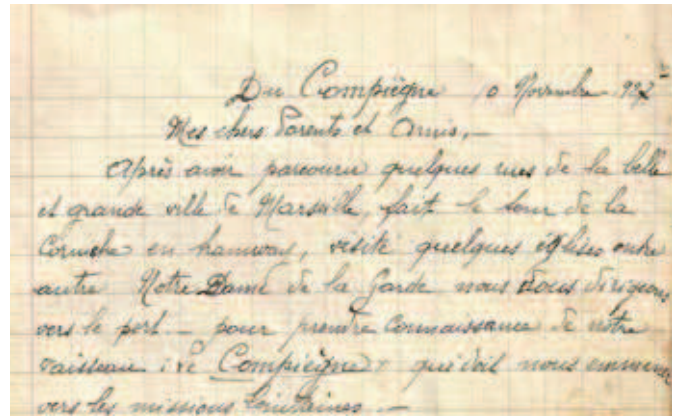 Du Compiègne 10 Novembre 1927
Mes chers Parents et Amis,-
Après avoir parcouru quelques rues de la belle
et grande ville de Marseille, fait le tour de la
Corniche en tramways, visité quelques églises entre
autre Notre Dame de la Garde nous nous dirigeons
vers le port - pour prendre connaissance de notre
vaisseau : Le Compiègne qui doit nous emmener
vers les missions lointaines.-